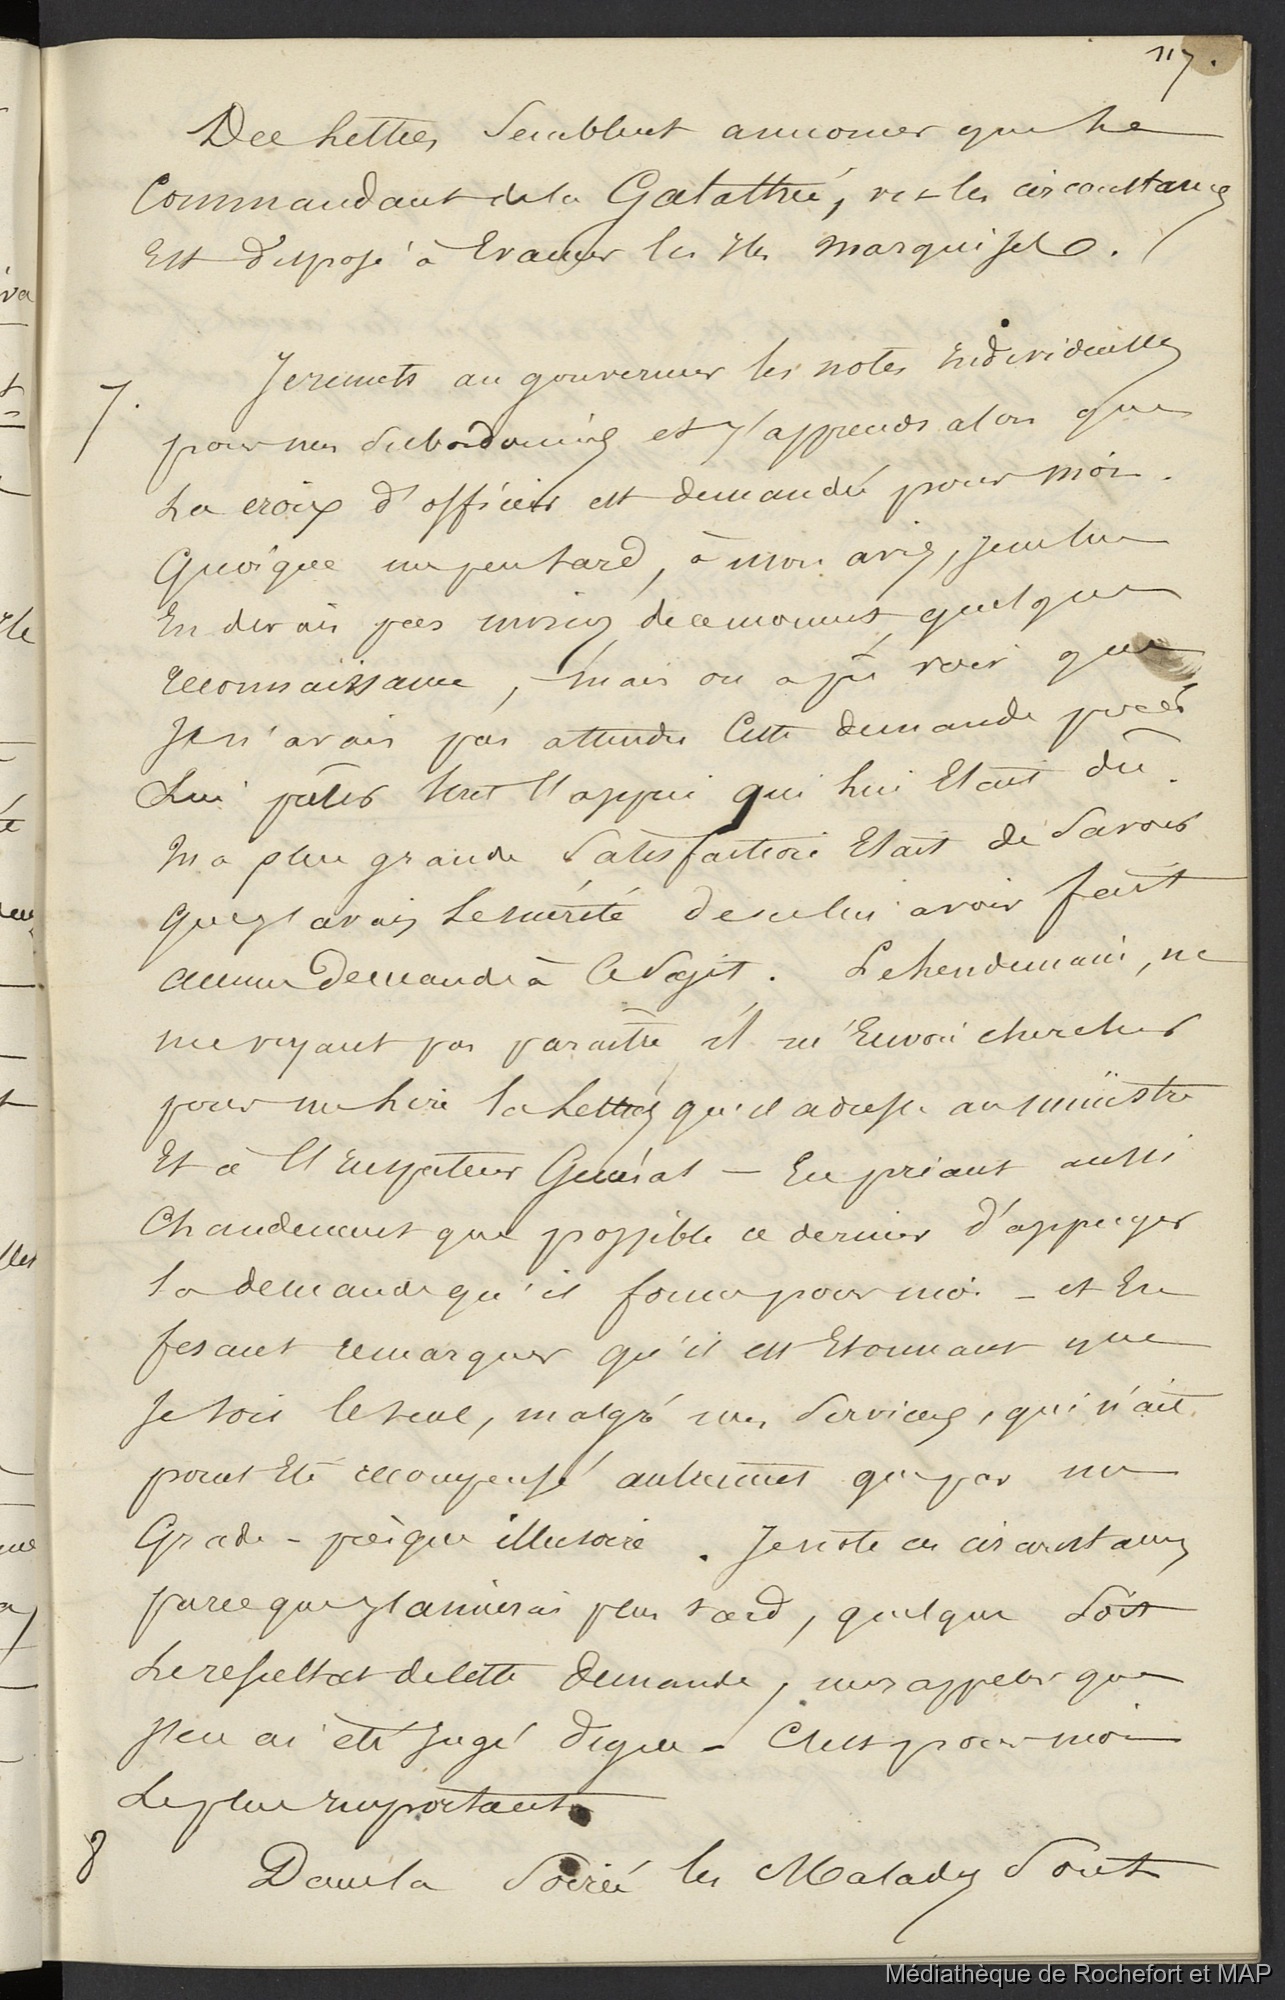 117.
Des Lettres Semblent annoncer que Le
Commandant de la Galathée, vu les circonstances
Est disposé à Evacuer les Iles Marquises.
7. Je remets au gouverneur les notes Individuelles
pour mes Subordonnés et j'apprends alors que
La croix d'officier est demandée pour moi.
Quoique un peu tard, à mon avis, je ne lui
En devais pas moins, de ce moment, quelque
reconnaissance, mais on a pû voir que
Je n'avais pas attendu Cette demande pour
Lui prêter tout l'appui qui lui Etait dû.
Ma plus grande Satisfaction Etait de Savoir
que j'avais Le mérite de ne lui avoir fait
aucune Demande à Ce Sujet. Le Lendemain, ne
me voyant pas paraître il m'Envoie chercher
pour me Lire la Lettre qu'il adresse au ministre
Et à l'Inspecteur Général — En priant aussi
Chaudement que possible ce dernier d'appuyer
la demande qu'il forme pour moi – et En
fesant remarquer qu'il est Etonnant que
Je sois le seul, malgré mes Services, qui n'ait
point Eté recompensé autrement que par un
Grade – presque illusoire. Je note ces circonstances
parce que j'aimerai plus tard, quelque Soit
Le resultat de Cette Demande, me rappeler que
j'en ai été Jugé digne – C'est pour moi
Le plus Important.
8 Dans la Soirée les Malades Sont
Médiathèque de Rochefort et MAP